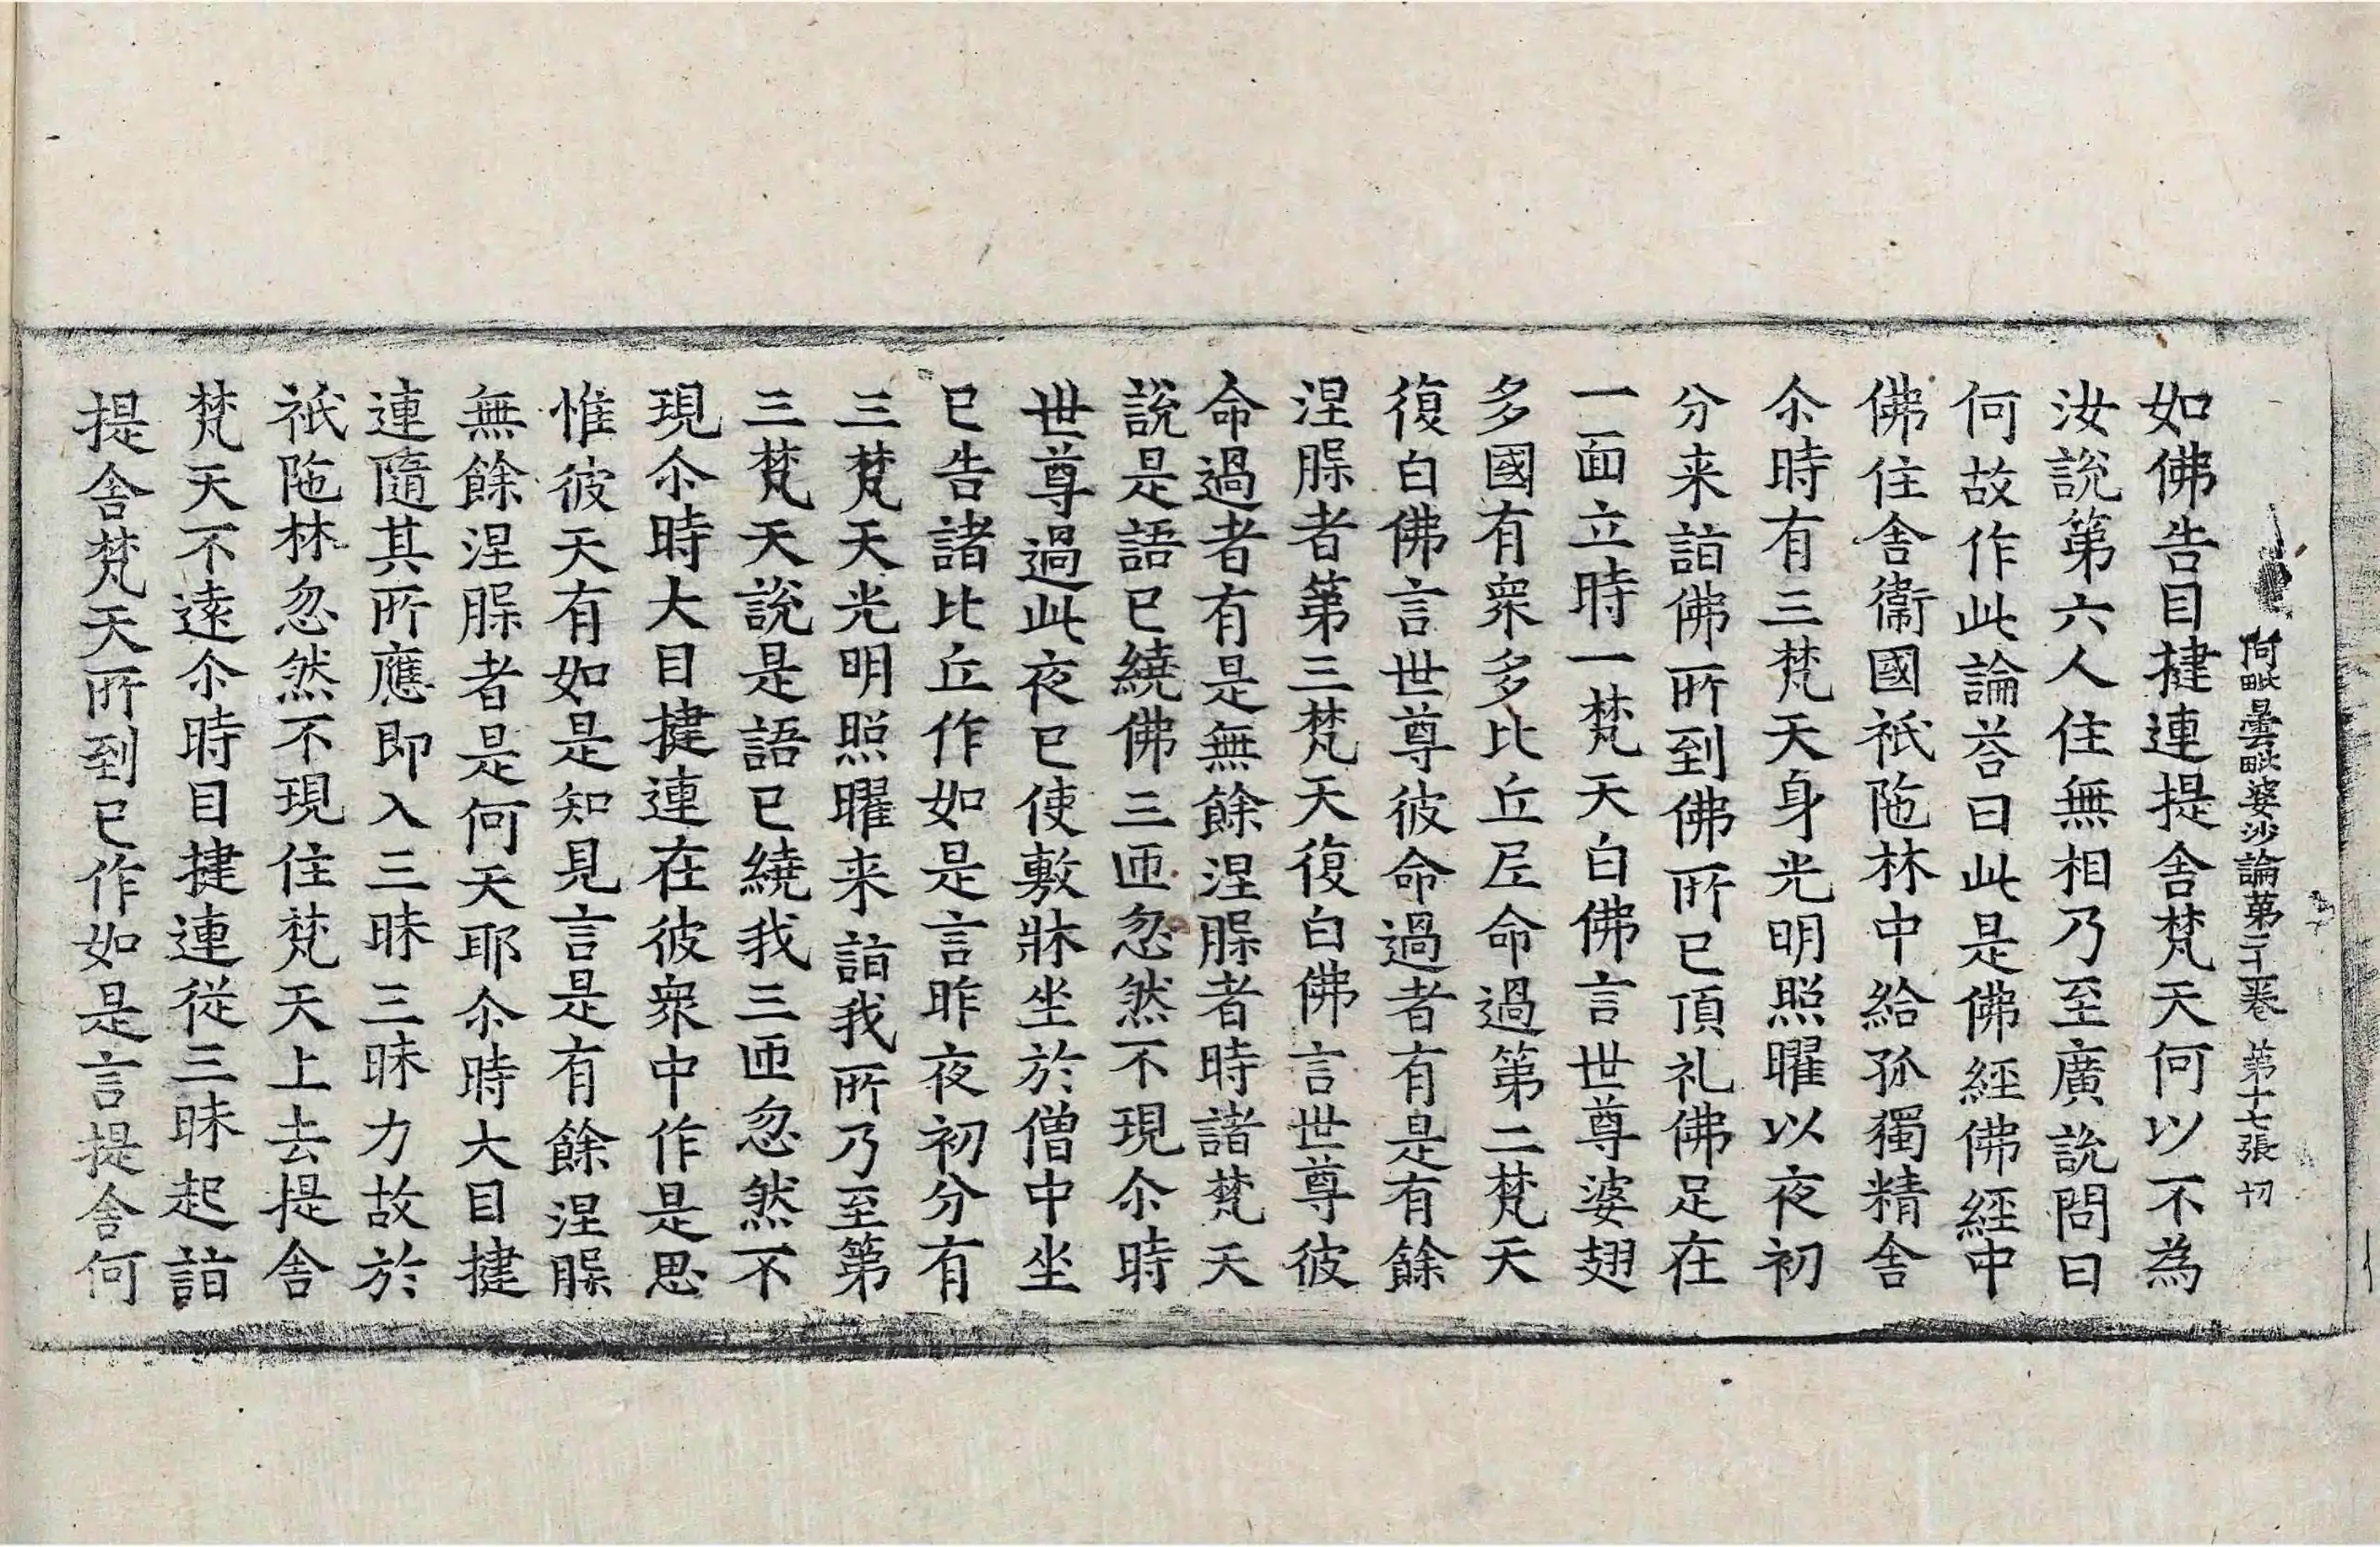 阿毗曇毗婆沙論第三十二卷 第十七張 切
如佛告目揵連提舍梵天何以不為
汝說第六人住無相乃至廣說問曰
何故作此論荅曰此是佛經佛經中
佛住舍衞國祇陁林中給孤獨精舍
尒時有三梵天身光明照曜以夜初
分来詣佛所到佛所已頂礼佛足在
一面立時一梵天白佛言世尊婆翅
多國有衆多比丘尼命過第二梵天
復白佛言世尊彼命過者有是有餘
涅槃者第三梵天復白佛言世尊彼
命過者有是無餘涅槃者時諸梵天
說是語已繞佛三匝忽然不現尒時
世尊過此夜已使敷牀坐於僧中坐
已告諸比丘作如是言昨夜初分有
三梵天光明照曜来詣我所乃至第
三梵天說是語已繞我三匝忽然不
現尒時大目揵連在彼衆中作是思
惟彼天有如是知見言是有餘涅槃
無餘涅槃者是何天耶尒時大目揵
連隨其所應即入三昧三昧力故於
祇陁林忽然不現住梵天上去提舍
梵天不遠尒時目揵連從三昧起詣
提舍梵天所到已作如是言提舍何